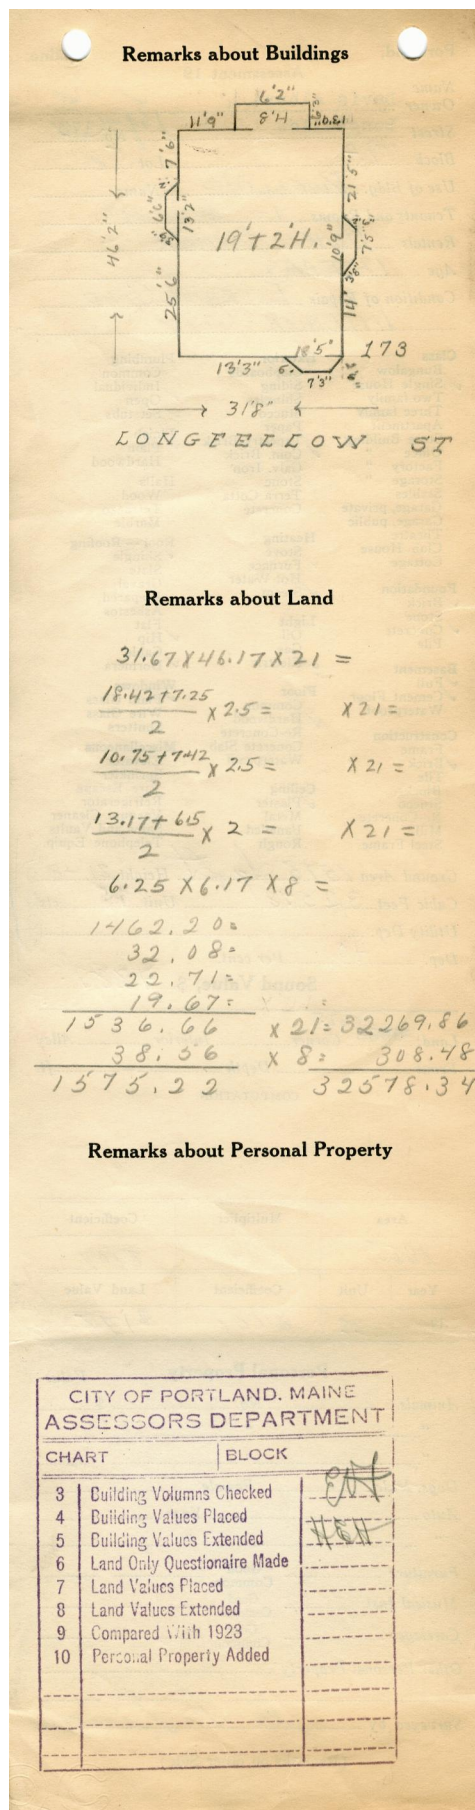 Remarks about Buildings
6'2"
11'9" 8'H. 6'2" 13'9"
7'6" 21'5"
46'2" 6'6" 13'2" 19'+2'H. 10'9" 7'5"
25'6" 14'
18'5" 173
13'3" 7'3"
31'8"
LONGFELLOW ST
Remarks about Land
31.67X46.17X21 =
18.42+7.25
2 X 2.5 = X 21 =
10.75+7.42
2 X 2.5 = X 21 =
13.17+6.5
2 X 2 = X 21 =
6.25 X 6.17 X 8 =
1462.20=
32.08=
22.71=
19.67=
1536.66 X 21= 32269.86
38.56 X 8= 308.48
1575.22 32578.34
Remarks about Personal Property
CITY OF PORTLAND, MAINE
ASSESSORS DEPARTMENT
CHART BLOCK
3 Building Volumns Checked
4 Building Values Placed
5 Building Values Extended HEH
6 Land Only Questionaire Made
7 Land Values Placed
8 Land Values Extended
9 Compared With 1923
10 Personal Property Added